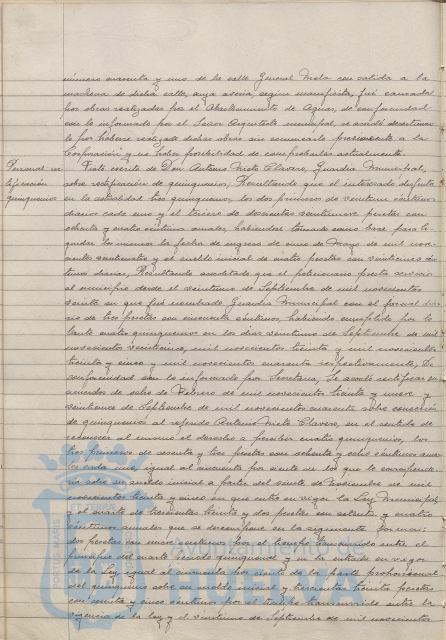 número cuarenta y uno de la calle General Mola con salida a la
trasera de dicha calle, cuya avería, según manifiesta, fué causada
por obras realizadas por el Abastecimiento de Aguas, de conformidad
con lo informado por el Señor Arquitecto municipal, se acordó desestimar-
lo por haberse realizado dichas obras sin comunicarlo previamente a la
Corporación y no haber posibilidad de comprobarlas actualmente.
Personal rec-
tificación
quinquenios
Visto escrito de Don Antonio Nieto Clavero, Guardia Municipal,
sobre rectificación de quinquenios; Resultando que el interesado disfruta
en la actualidad tres quinquenios, los dos primeros de veintiun céntimos
diarios cada uno y el tercero de doscientas veintinueve pesetas con
ochenta y cuatro céntimos anuales, habiéndose tomado como base para li-
quidar los mismos la fecha de ingreso de uno de Mayo de mil nove-
cientos veinticuatro y el sueldo inicial de cuatro pesetas con veinticinco cén-
timos diarios; Resultando acreditado que el peticionario presta servicio
al municipio desde el veintiuno de Septiembre de mil novecientos
veinte en que fué nombrado Guardia Municipal con el jornal dia-
rio de tres pesetas con cincuenta céntimos, habiendo cumplido por lo
tanto cuatro quinquenios en los días veintiuno de Septiembre de mil
novecientos veinticinco, mil novecientos treinta y mil novecientos
treinta y cinco y mil novecientos cuarenta respectivamente; De
conformidad con lo informado por Secretaría, Se acordó rectificar los
acuerdos de siete de Febrero de mil novecientos treinta y nueve y
veintinueve de Septiembre de mil novecientos cuarenta sobre concesión
de quinquenios al referido Antonio Nieto Clavero, en el sentido de
reconocer al mismo el derecho a percibir cuatro quinquenios, los
tres primeros de sesenta y tres pesetas con ochenta y ocho céntimos anua-
les cada uno, igual al cincuenta por ciento de los que le corresponde-
ría sobre su sueldo inicial a partir del siete de Noviembre de mil
novecientos treinta y cinco en que entró en vigor la Ley Municipal,
y el cuarto de trescientas treinta y dos pesetas con setenta y cuatro
céntimos anuales que se descompone en la siguiente forma:
dos pesetas con cinco céntimos por el tiempo transcurrido entre el
principio del cuarto citado quinquenio y la entrada en vigor
de la Ley, igual al cincuenta por ciento de la parte proporcional
del quinquenio sobre su sueldo inicial y trescientas treinta pesetas
con sesenta y nueve céntimos por el tiempo transcurrido entre la
vigencia de la ley y el veintiuno de Septiembre de mil novecientos